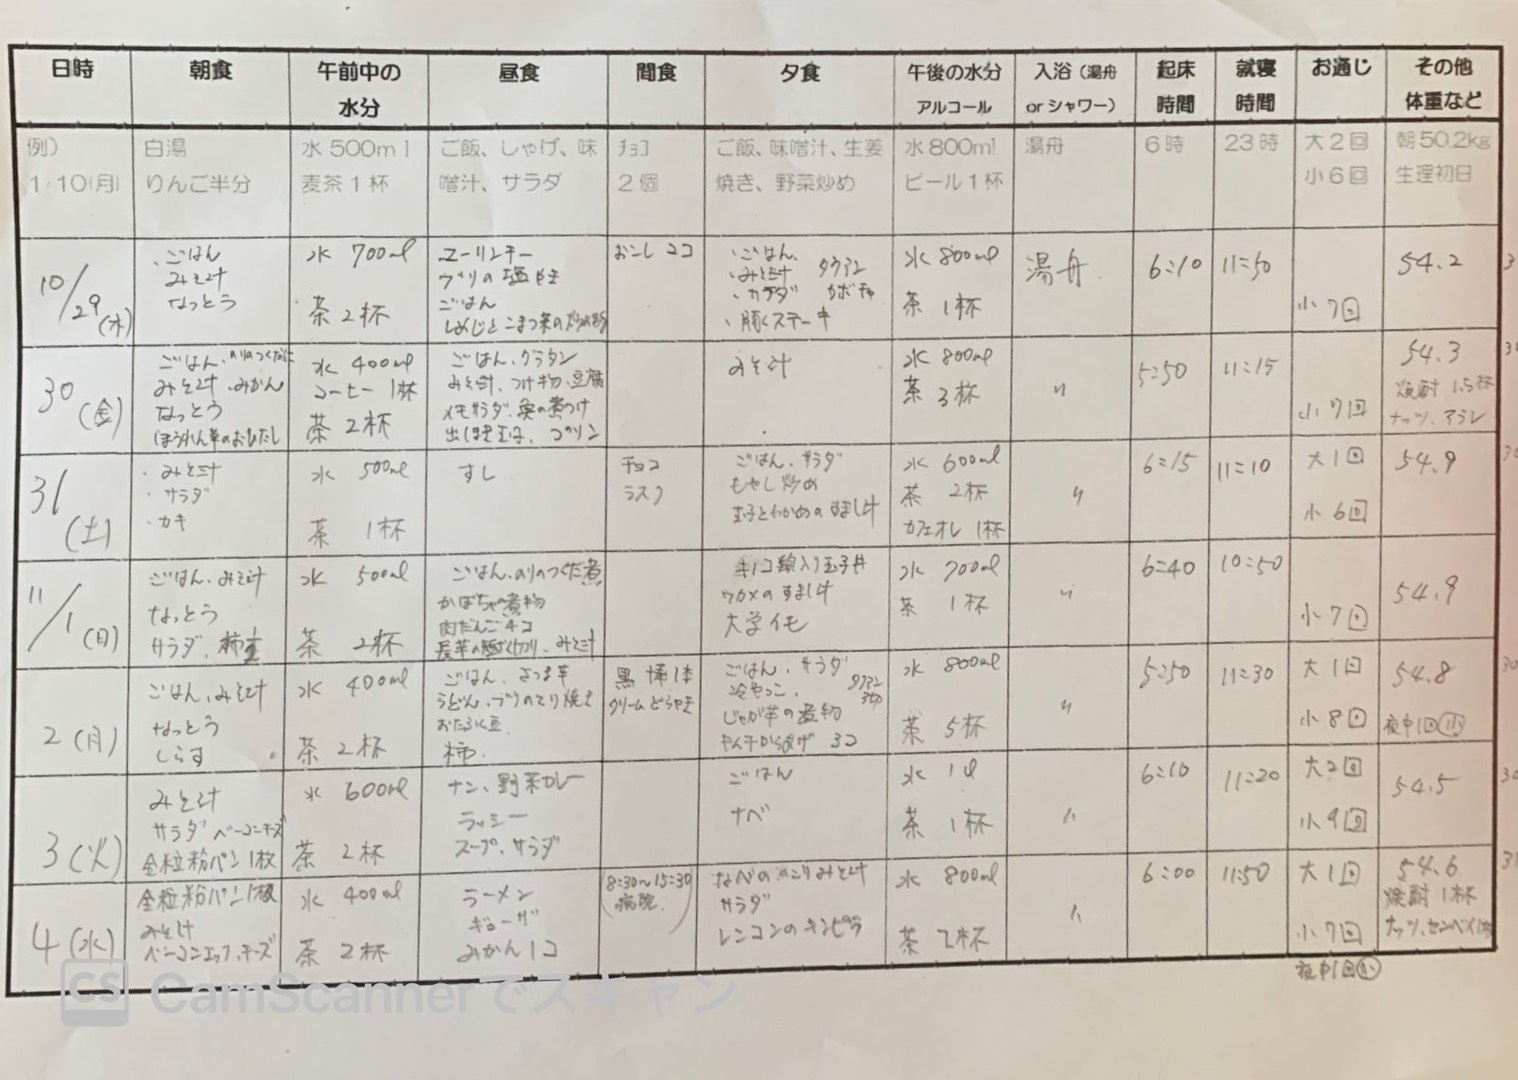 日時 朝食 午前中の水分 昼食 間食 夕食 午後の水分アルコール 入浴（湯舟orシャワー） 起床時間 就寝時間 お通じ その他体重など
例） 白湯 水500ml ご飯、しゃけ、味 チョコ ご飯、味噌汁、生姜 水800ml 湯舟 6時 23時 大2回 朝50.2kg
1/10(月) りんご半分 麦茶1杯 噌汁、サラダ 2個 焼き、野菜炒め ビール1杯 小6回 生理初日
10/29(木)
・ごはん
みそ汁
なっとう
水 700ml
茶 2杯
ユーリンチー
ブリの塩やき
ごはん
しめじとこまつ菜の
おこし 2コ
・ごはん
・みそ汁 タクアン
・サラダ カボチャ
・豚ステーキ
水 800ml
茶 1杯
湯舟
6:10
11:50
小7回
54.2
30(金)
ごはん・のりのつくだに
みそ汁・みかん
なっとう
ほうれん草のおひたし
水 400ml
コーヒー 1杯
茶 2杯
ごはん、グラタン
みそ汁、つけ物、豆腐
イモサラダ、魚の煮つけ
出し巻玉子、プリン
みそ汁
水 800ml
茶 3杯
〃
5:50
11:15
小7回
54.3
焼酎 1.5杯
ナッツ、アラレ
31(土)
・みそ汁
・サラダ
・カキ
水 500ml
茶 1杯
すし
チョコ
ラスク
ごはん、サラダ
もやし炒め
玉子とわかめのすまし汁
水 600ml
茶 2杯
カフェオレ 1杯
〃
6:15
11:10
大1回
小6回
54.9
11/1(日)
ごはん、みそ汁
なっとう
サラダ、柿
水 500ml
茶 2杯
ごはん、のりのつくだ煮
かぼちゃの煮物
肉だんご4コ
長芋の みそ汁
キノコ 入り玉子丼
ワカメのすまし汁
大学イモ
水 700ml
茶 1杯
〃
6:40
10:50
小7回
54.9
2(月)
ごはん、みそ汁
なっとう
しらす
水 400ml
茶 2杯
ごはん、さつま芋
うどん、ブリのてり焼き
おたふく豆
柿
黒棒1本
クリームどらやき
ごはん、サラダ
冷やっこ、タクアン
じゃが芋の煮物
から揚げ 3コ
水 800ml
茶 5杯
〃
5:50
11:30
大1回
小8回
54.8
夜中1回(小)
3(火)
みそ汁
サラダ ベーコンチーズ
全粒粉パン1枚
水 600ml
茶 2杯
ナン、野菜カレー
ラッシー
スープ、サラダ
ごはん
ナベ
水 1l
茶 1杯
〃
6:10
11:20
大2回
小9回
54.5
4(水)
全粒粉パン1枚
みそ汁
ベーコンエッグ、チーズ
水 400ml
茶 2杯
ラーメン
ギョーザ
みかん1コ
8:30～15:30
病院
なべののこりみそ汁
サラダ
レンコンのキンピラ
水 800ml
茶 2杯
〃
6:00
11:50
大1回
小7回
夜中1回(小)
54.6
焼酎 1杯
ナッツ、センベイ
CS CamScannerでスキャン